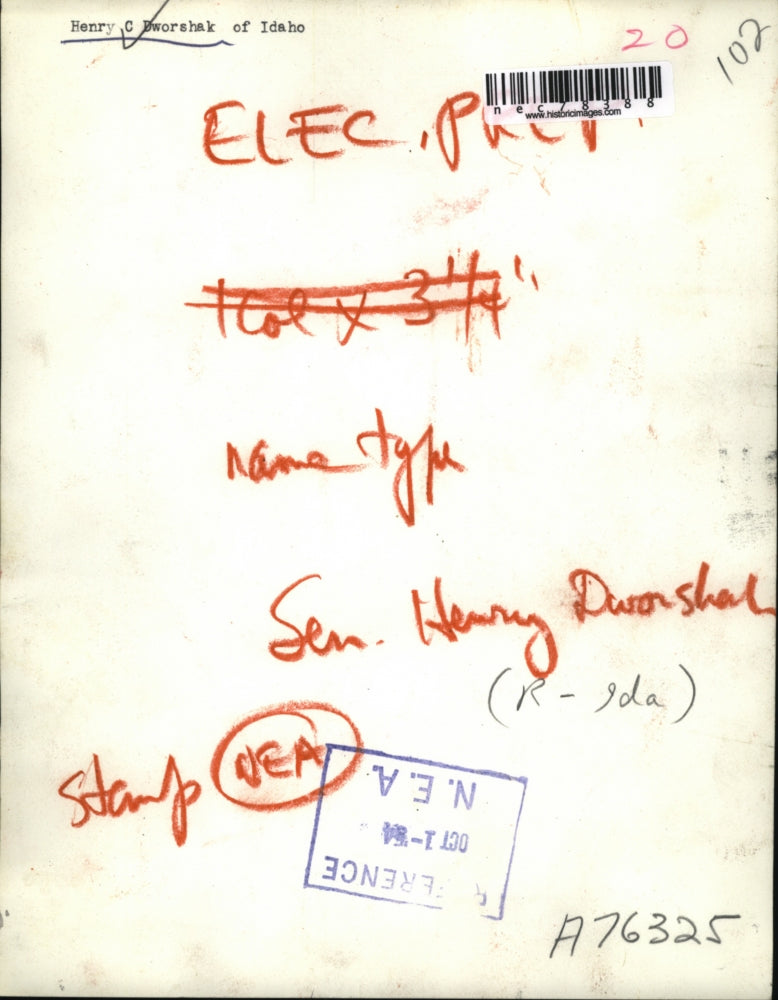 Henry C Dworshak of Idaho
20
102
nec78388
www.historicimages.com
ELEC.
1 Col X 3 1/4"
Name type
Sen. Henry Dworshak
(R - Ida)
Stamp NEA
N.E.A.
OCT 1-54
A76325